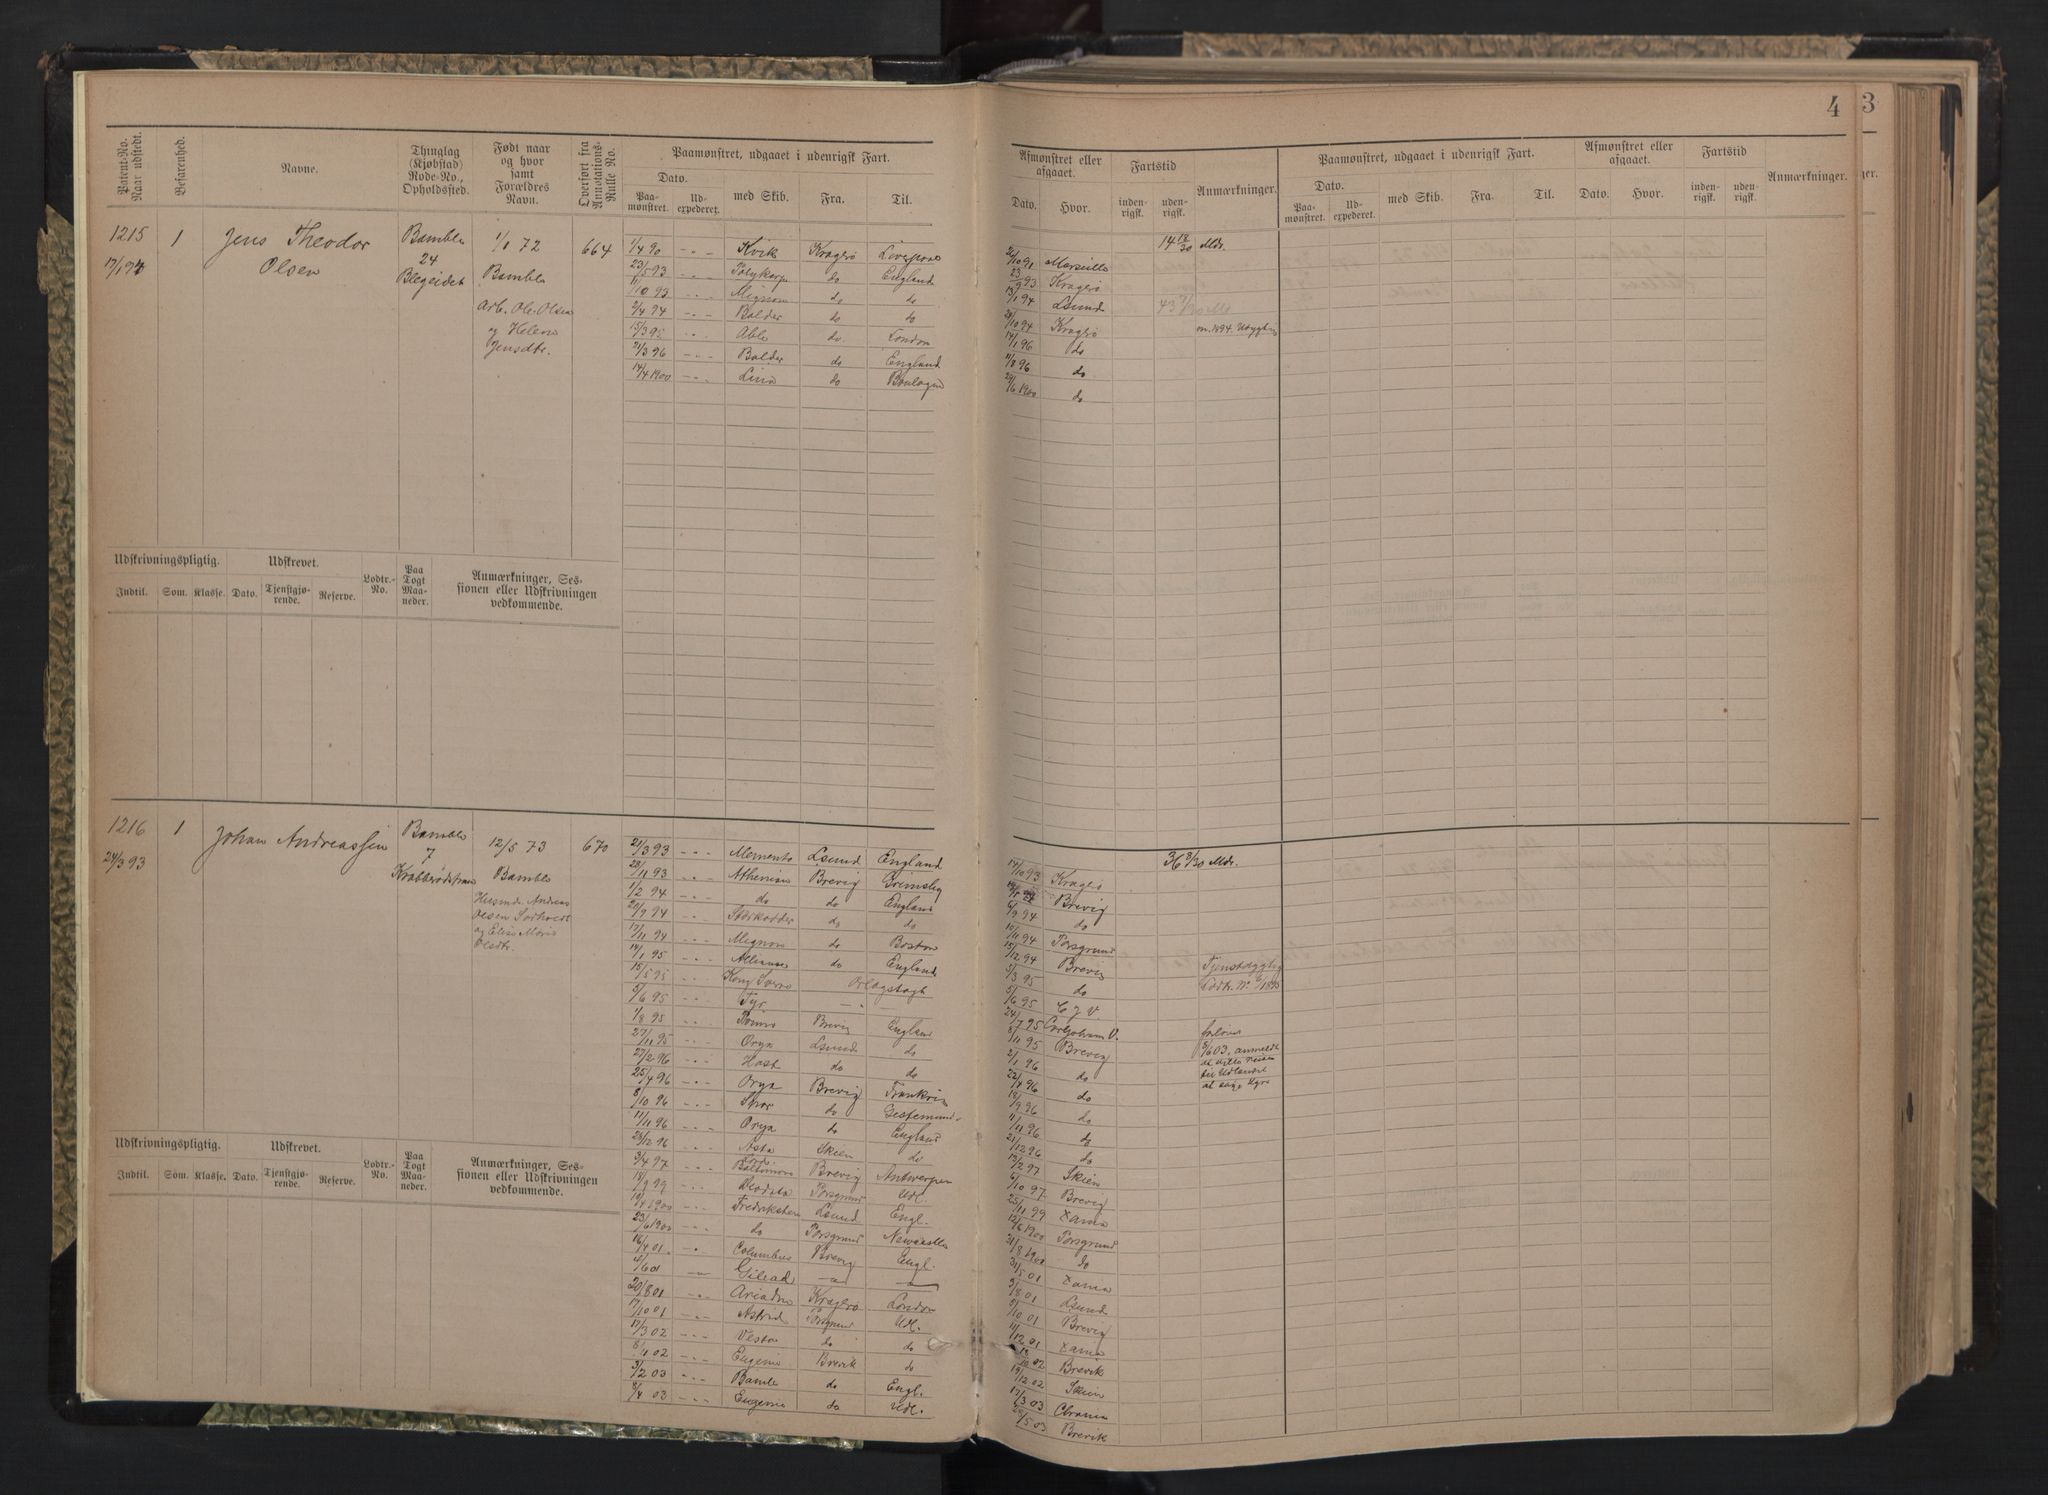 4
3
Patent-No. Naar udstedt.
Befarenhed.
Navne.
Thinglag (Kjøbstad) Rode-No., Opholdssted.
Født naar og hvor samt Forældres Navn.
Overført fra Annotations-Rulle No.
Paamønstret, udgaaet i udenrigsk Fart.
Dato.
Paamønstret.
Udexpederet.
med Skib.
Fra.
Til.
Afmønstret eller afgaaet.
Fartstid
Dato.
Hvor.
indenrigsk.
udenrigsk.
Anmærkninger.
Paamønstret, udgaaet i udenrigsk Fart.
Dato.
Paamønstret.
Udexpederet.
med Skib.
Fra.
Til.
Afmønstret eller afgaaet.
Dato.
Hvor.
Fartstid
indenrigsk.
udenrigsk.
Anmærkninger.
ger.
1215
1
Jens Theodor Olsen
Bamble
24
Blegeidet
1/1 72
Bamble
Arb. Ole Olsen
og Helene
Jensdtr.
664
1/4 90 Kvik Kragerø Liverpool
23/5 93 Polykarp do England
11/10 93 Mignon do do
2/4 94 Balder do do
15/3 95 Able do London
21/3 96 Balder do England
14/4 1900 Lina do Boulogne
14 18/30 Mdr.
21/10 91 Marseille
23/9 93 Kragerø
13/1 94 Lsund
/10 94 Kragerø
14/1 96 do
11/8 96 do
29/6 1900 do
Udskrivningspligtig.
Udskrevet.
Lodtr.-No.
Paa Togt Maaneder.
Anmærkninger, Sessionen eller Udskrivningen vedkommende.
Indtil.
Som.
Klasse.
Dato.
Tjenstgjørende.
Reserve.
1216
24/3 93
1
Johan Andreassen
Bamble
7
12/5 73
Bamble
Husmd. Andreas
Olsen
og Elise Marie
Olsdtr.
670
21/3 93 Memento Lsund England
28/11 93 Athenian Brevig Grimsby
1/2 94 do do England
20/9 94 Storkodder do do
17/11 94 Mignon do Boston
14/1 95 Alliance do England
15/5 95 Kong Sverre Orlogstogt
5/6 95 Tyr
1/8 95 Brevig England
27/11 95 Orya Lsund do
27/2 96 Høst do do
25/4 96 Orya Brevig Frankrig
8/10 96 Thor do Gestemünde
11/11 96 Orya do England
28/12 96 Asta Skien do
3/4 97 Lord Baltimore Brevig Antwerpen
18/9 99 Porsgrund Udl.
19/4 1900 Fredriksteen Lsund Engl.
23/6 1900 do Porsgrund Newcastle
16/4 01 Columbus Brevig Engl.
4/6 01 Gilead
20/8 01 Ariadne Kragerø London
17/10 01 Astrid Porsgrund Udl.
12/3 02 Vesta do do
8/11 02 Eugenie Brevik do
3/2 03 Bamle do Engl.
8/4 03 Eugenie do Udl.
36 8/30 Mdr.
17/10 93 Kragerø
Brevig
6/9 94 do
10/11 94 Porsgrund
15/12 94 Brevig
5/3 95 do
5/6 95 C J V.
24/7 95 Carljohans V.
8/11 95 Brevig
2/1 96 do
22/4 96 do
18/9 96 do
11/11 96 do
21/12 96 do
13/2 97 Skien
4/10 97 Brevig
25/11 99 Xania
12/6 1900 Porsgrund
31/8 1900 do
31/5 01 Xania
5/8 01 Lsund
5/10 01 Brevig
11/12 01 Xania
/10 02 Brevik
19/12 02 Skien
17/3 03 Chrania
25/5 03 Brevik
5/6 03, anmeldt
til Udlandet
at søge Hyre
Udskrivningspligtig.
Udskrevet.
Lodtr.-No.
Paa Togt Maaneder.
Anmærkninger, Sessionen eller Udskrivningen vedkommende.
Indtil.
Som.
Klasse.
Dato.
Tjenstgjørende.
Reserve.